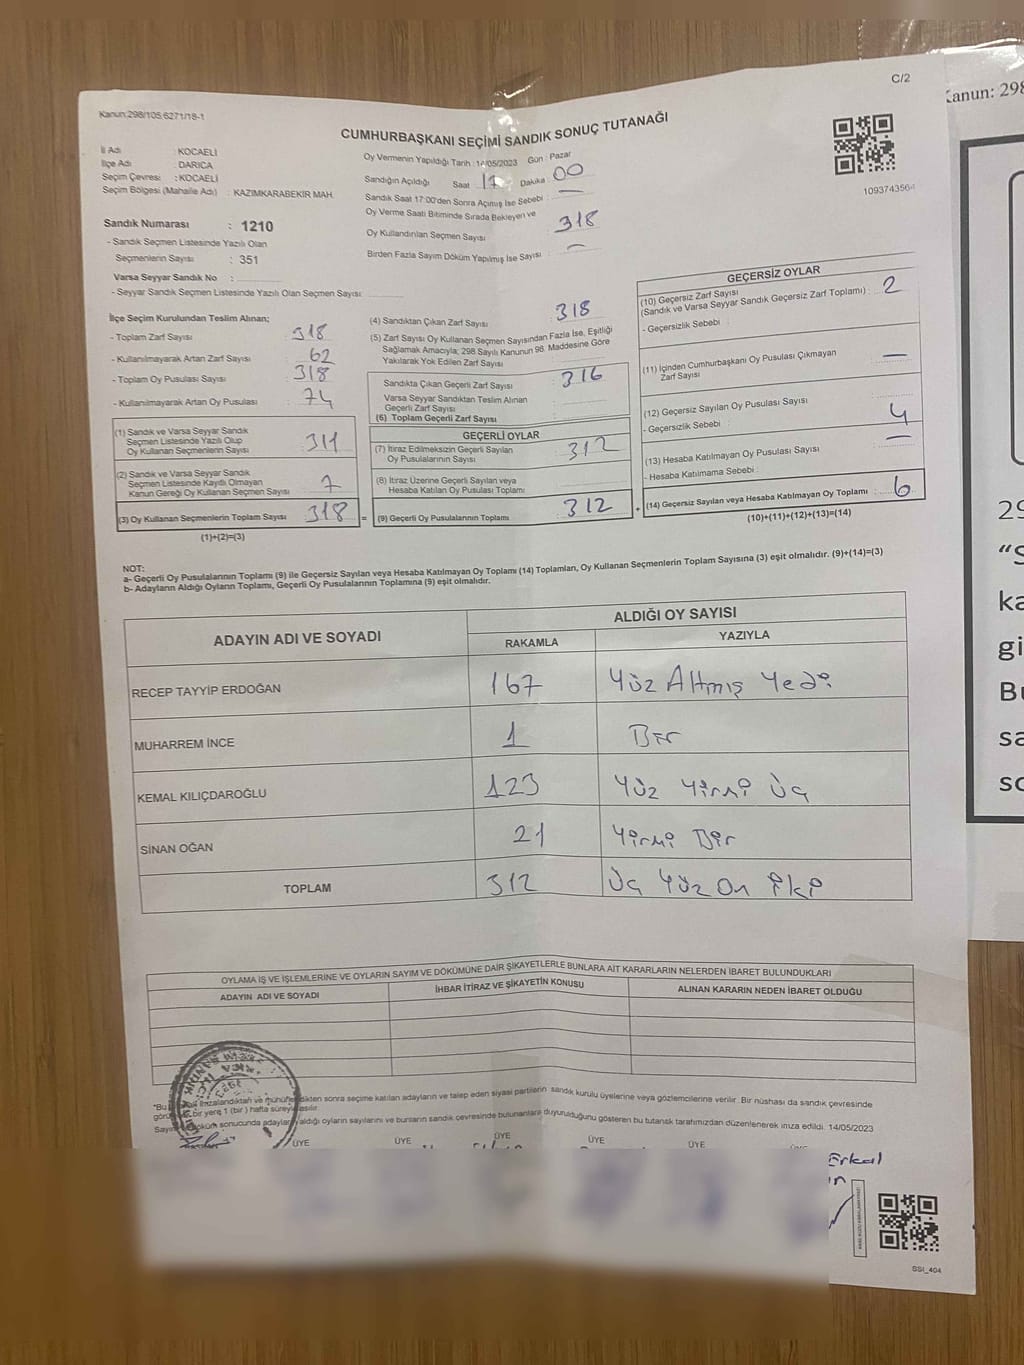 C/2
Kanun: 298
Kanun:298/105,6271/18-1
CUMHURBAŞKANI SEÇİMİ SANDIK SONUÇ TUTANAĞI
109374356-1
İl Adı : KOCAELİ
İlçe Adı : DARICA
Seçim Çevresi : KOCAELİ
Seçim Bölgesi (Mahalle Adı) : KAZIMKARABEKİR MAH.
Sandık Numarası : 1210
- Sandık Seçmen Listesinde Yazılı Olan
Seçmenlerin Sayısı : 351
Varsa Seyyar Sandık No :
- Seyyar Sandık Seçmen Listesinde Yazılı Olan Seçmen Sayısı:
Oy Vermenin Yapıldığı Tarih : 14/05/2023 Gün : Pazar
Sandığın Açıldığı Saat 17 Dakika 00
Sandık Saat 17:00'den Sonra Açımış İse Sebebi : —
Oy Verme Saati Bitiminde Sırada Bekleyen ve
Oy Kullandırılan Seçmen Sayısı : 318
Birden Fazla Sayım Döküm Yapılmış İse Sayısı : —
İlçe Seçim Kurulundan Teslim Alınan;
- Toplam Zarf Sayısı : 318
- Kullanılmayarak Artan Zarf Sayısı : 62
- Toplam Oy Pusulası Sayısı : 318
- Kullanılmayarak Artan Oy Pusulası : 74
(1) Sandık ve Varsa Seyyar Sandık
Seçmen Listesinde Yazılı Olup
Oy Kullanan Seçmenlerin Sayısı : 311
(2) Sandık ve Varsa Seyyar Sandık
Seçmen Listesinde Kayıtlı Olmayan
Kanun Gereği Oy Kullanan Seçmen Sayısı : 7
(3) Oy Kullanan Seçmenlerin Toplam Sayısı : 318
(1)+(2)=(3)
(4) Sandıktan Çıkan Zarf Sayısı : 318
(5) Zarf Sayısı Oy Kullanan Seçmen Sayısından Fazla İse, Eşitliği
Sağlamak Amacıyla; 298 Sayılı Kanunun 98. Maddesine Göre
Yakılarak Yok Edilen Zarf Sayısı
Sandıkta Çıkan Geçerli Zarf Sayısı : 316
Varsa Seyyar Sandıktan Teslim Alınan
Geçerli Zarf Sayısı
(6) Toplam Geçerli Zarf Sayısı
GEÇERLİ OYLAR
(7) İtiraz Edilmeksizin Geçerli Sayılan
Oy Pusulalarının Sayısı : 312
(8) İtiraz Üzerine Geçerli Sayılan veya
Hesaba Katılan Oy Pusulası Toplamı
= (9) Geçerli Oy Pusulalarının Toplamı : 312
GEÇERSİZ OYLAR
(10) Geçersiz Zarf Sayısı
(Sandık ve Varsa Seyyar Sandık Geçersiz Zarf Toplamı) : 2
- Geçersizlik Sebebi :
(11) İçinden Cumhurbaşkanı Oy Pusulası Çıkmayan
Zarf Sayısı : —
(12) Geçersiz Sayılan Oy Pusulası Sayısı : 4
- Geçersizlik Sebebi :
(13) Hesaba Katılmayan Oy Pusulası Sayısı : —
- Hesaba Katılmama Sebebi :
+ (14) Geçersiz Sayılan veya Hesaba Katılmayan Oy Toplamı : 6
(10)+(11)+(12)+(13)=(14)
NOT:
a- Geçerli Oy Pusulalarının Toplamı (9) ile Geçersiz Sayılan veya Hesaba Katılmayan Oy Toplamı (14) Toplamları, Oy Kullanan Seçmenlerin Toplam Sayısına (3) eşit olmalıdır. (9)+(14)=(3)
b- Adayların Aldığı Oyların Toplamı, Geçerli Oy Pusulalarının Toplamına (9) eşit olmalıdır.
ADAYIN ADI VE SOYADI ALDIĞI OY SAYISI
RAKAMLA YAZIYLA
RECEP TAYYİP ERDOĞAN 167 Yüz Altmış Yedi
MUHARREM İNCE 1 Bir
KEMAL KILIÇDAROĞLU 123 Yüz Yirmi Üç
SİNAN OĞAN 21 Yirmi Bir
TOPLAM 312 Üç Yüz On İki
OYLAMA İŞ VE İŞLEMLERİNE VE OYLARIN SAYIM VE DÖKÜMÜNE DAİR ŞİKAYETLERLE BUNLARA AİT KARARLARIN NELERDEN İBARET BULUNDUKLARI
ADAYIN ADI VE SOYADI İHBAR İTİRAZ VE ŞİKAYETİN KONUSU ALINAN KARARIN NEDEN İBARET OLDUĞU
*Bu imzalandıktan ve mühürlendikten sonra seçime katılan adayların ve talep eden siyasi partilerin sandık kurulu üyelerine veya gözlemcilerine verilir. Bir nüshası da sandık çevresinde
bir yere 1 (bir) hafta süreyle asılır.
Sayım döküm sonucunda adayların aldığı oyların sayılarını ve bunların sandık çevresinde bulunanlara duyurulduğunu gösteren bu tutanak tarafımızdan düzenlenerek imza edildi. 14/05/2023
ÜYE ÜYE ÜYE ÜYE ÜYE
Erkal
SSI_404
29
"S
ka
gi
Bu
sa
so